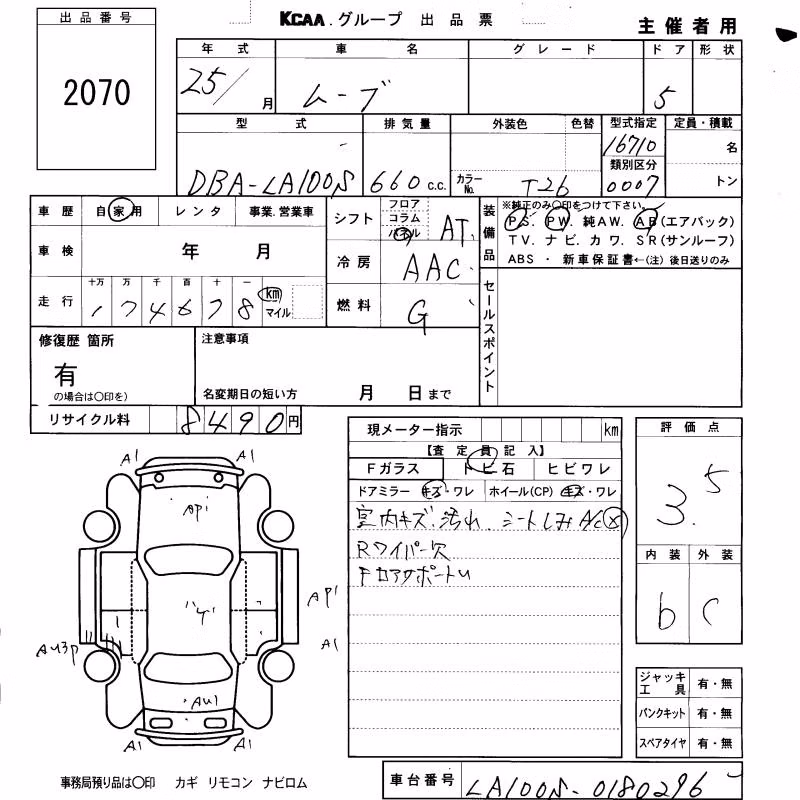 出品番号
2070
KCAA.グループ 出品票
主催者用
年式 車名 グレード ドア 形状
25/ 月 ムーブ 5
型式 排気量 外装色 色替 型式指定 定員・積載
16710 名
類別区分
DBA-LA100S 660 c.c. カラーNo. T26 0007 トン
車歴 自家用 レンタ 事業.営業車
シフト フロア コラム パネル AT
装備品 ※純正のみ○印をつけて下さい。
PS. PW. 純AW. AB(エアバック)
TV. ナビ. カワ. SR(サンルーフ)
ABS ・ 新車保証書←(注)後日送りのみ
車検 年 月
冷房 AAC
走行 十万 万 千 百 十 一
174678 km マイル
燃料 G
セールスポイント
修復歴 箇所
有
の場合は○印を)
注意事項
名変期日の短い方 月 日まで
リサイクル料 8490円
現メーター指示 km
【査定員記入】
Fガラス トビ石 ヒビワレ
ドアミラー キズ・ワレ ホイール(CP) キズ・ワレ
室内キズ.汚れ シートしみ A/C(x)
Rワイパー欠
評価点
3.5
内装 外装
b C
A1 A1
AP1
AP1
A1
AU3P
AU1
A1 A1
ジャッキ工具 有・無
パンクキット 有・無
スペアタイヤ 有・無
事務局預り品は○印 カギ リモコン ナビロム
車台番号 LA100S-0180296